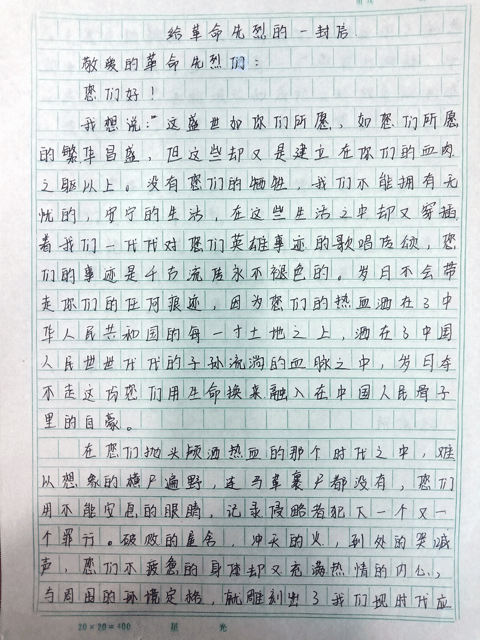 给革命先烈的一封信
敬爱的革命先烈们：
您们好！
我想说："这盛世如你们所愿，如您们所愿
的繁华昌盛，但这些却又是建立在你们的血肉
之躯以上。没有您们的牺牲，我们不能拥有无
忧的，安宁的生活，在这些生活之中却又穿插
着我们一代代对您们英雄事迹的歌唱传颂，您
们的事迹是千古流传永不褪色的。岁月不会带
走你们的任何痕迹，因为您们的热血洒在了中
华人民共和国的每一寸土地之上，洒在了中国
人民世世代代的子孙流淌的血脉之中，岁月夺
不走这份您们用生命换来融入在中国人民骨子
里的自豪。
在您们抛头颅洒热血的那个时代之中，难
以想象的横尸遍野，连马革裹尸都没有，您们
用不能安息的眼睛，记录侵略者犯下一个又一
个罪行。破败的屋舍，冲天的火，到处的哭喊
声，您们不疲惫的身体却又充满热情的内心，
与周围的环境定格，就雕刻出了我们现时代应
20×20=400 星光